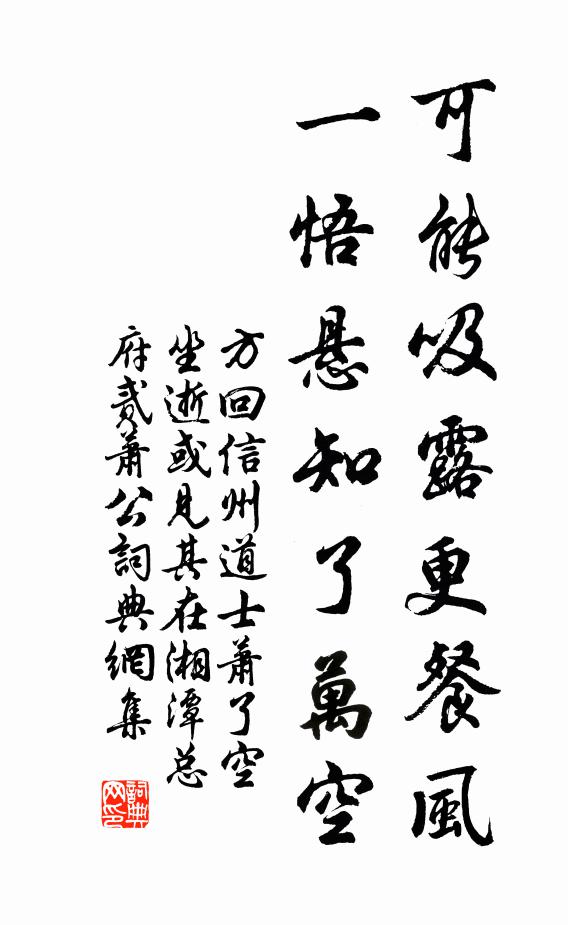 可能吸露更餐風
一悟懸知了萬空
方回信州道士蕭了空
坐逝或見其在湘潭总
府貳蕭公詞典網集
詞典
网印